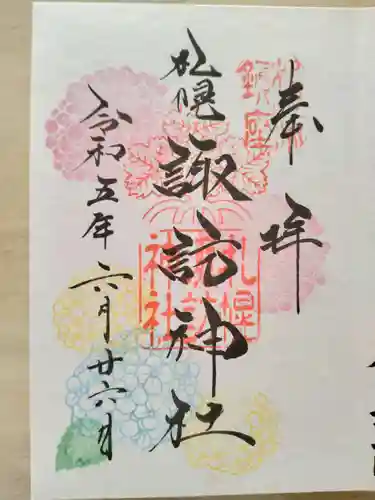 奉拝
札幌
諏訪神社
令和五年六月廿六日
札幌
諏訪
神社